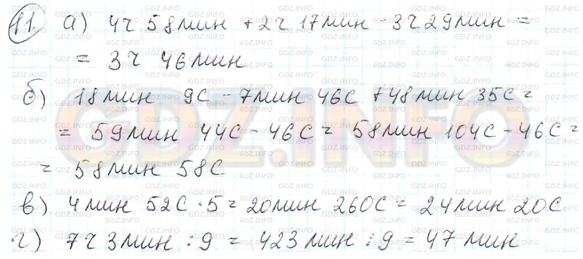 11. а) 4ч 58мин + 2ч 17мин - 3ч 29мин =
= 3ч 46мин
б) 18мин 9с - 7мин 46с + 48мин 35с =
= 59мин 44с - 46с = 58мин 104с - 46с =
= 58мин 58с
GDZ.INFO
в) 4мин 52с · 5 = 20мин 260с = 24мин 20с
г) 7ч 3мин : 9 = 423мин : 9 = 47мин